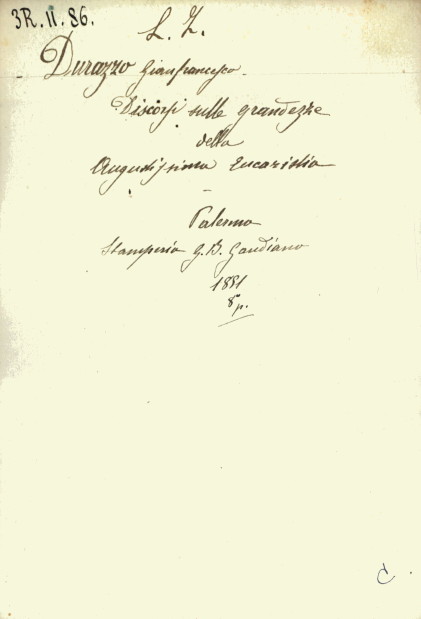 3R. II. 86.
L. Z.
Durazzo Gianfrancesco.
Discorsi sulle grandezze
della
Augustissima Eucaristia
Palermo
Stamperia G. B. Gaudiano
1881
8° p.
C